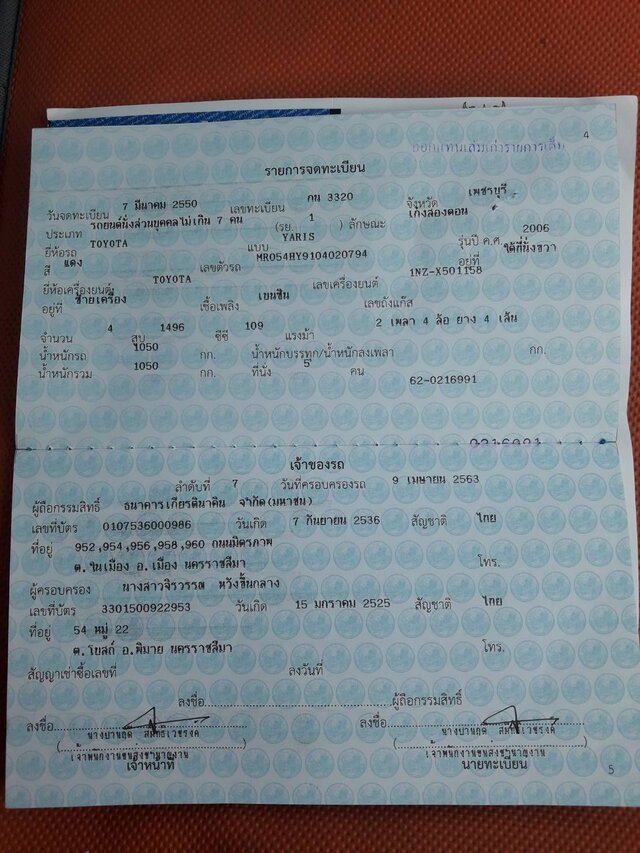 4
ออกแทนเล่มเก่ารายการเต็ม
รายการจดทะเบียน
วันจดทะเบียน 7 มีนาคม 2550 เลขทะเบียน กน 3320 จังหวัด เพชรบุรี
ประเภท รถยนต์นั่งส่วนบุคคลไม่เกิน 7 คน (รย. 1 ) ลักษณะ เก๋งสองตอน
ยี่ห้อรถ TOYOTA แบบ YARIS รุ่นปี ค.ศ. 2006
สี แดง เลขตัวรถ MR054HY9104020794 อยู่ที่ ใต้ที่นั่งขวา
ยี่ห้อเครื่องยนต์ TOYOTA เลขเครื่องยนต์ 1NZ-X501158
อยู่ที่ ซ้ายเครื่อง เชื้อเพลิง เบนซิน เลขถังแก๊ส
จำนวน 4 สูบ 1496 ซีซี 109 แรงม้า 2 เพลา 4 ล้อ ยาง 4 เส้น
น้ำหนักรถ 1050 กก. น้ำหนักบรรทุก/น้ำหนักลงเพลา กก.
น้ำหนักรวม 1050 กก. ที่นั่ง 5 คน
62-0216991
0216991
เจ้าของรถ
ลำดับที่ 7 วันที่ครอบครองรถ 9 เมษายน 2563
ผู้ถือกรรมสิทธิ์ ธนาคารเกียรตินาคิน จำกัด(มหาชน)
เลขที่บัตร 0107536000986 วันเกิด 7 กันยายน 2536 สัญชาติ ไทย
ที่อยู่ 952,954,956,958,960 ถนนมิตรภาพ
ต.ในเมือง อ.เมือง นครราชสีมา โทร.
ผู้ครอบครอง นางสาวจิรวรรณ หวังชื่นกลาง
เลขที่บัตร 3301500922953 วันเกิด 15 มกราคม 2525 สัญชาติ ไทย
ที่อยู่ 54 หมู่ 22
ต.โบสถ์ อ.พิมาย นครราชสีมา โทร.
สัญญาเช่าซื้อเลขที่ ลงวันที่
ลงชื่อ ผู้ถือกรรมสิทธิ์
ลงชื่อ ลงชื่อ
เจ้าพนักงานขนส่งชำนาญงาน เจ้าพนักงานขนส่งชำนาญงาน
เจ้าหน้าที่ นายทะเบียน
5